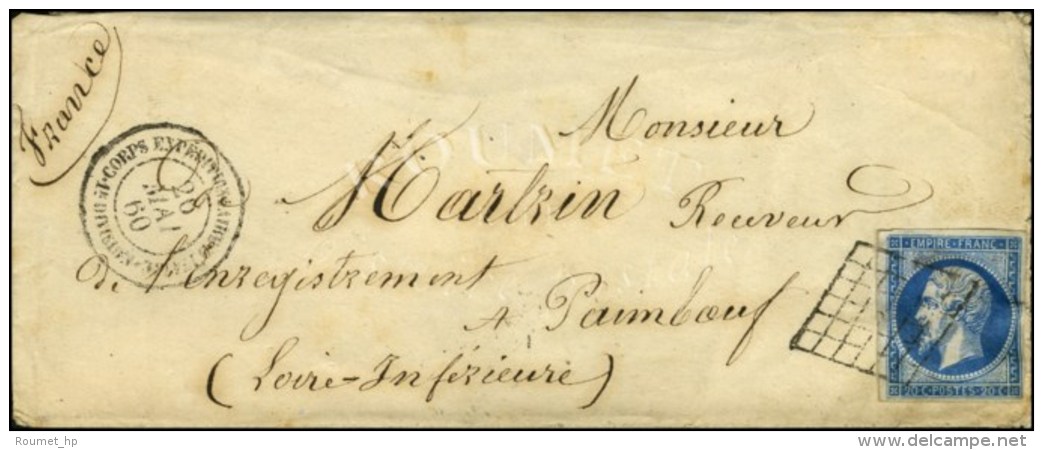 France
Monsieur
Martzin Receveur
de l'enregistrement
A Paimbœuf
(Loire-Inférieure)
CORPS EXPÉDITIONNAIRE
26
MAI
60
EMPIRE FRANC
20 C POSTES 20 C
ROUMET
Roumet_hp
www.delcampe.net